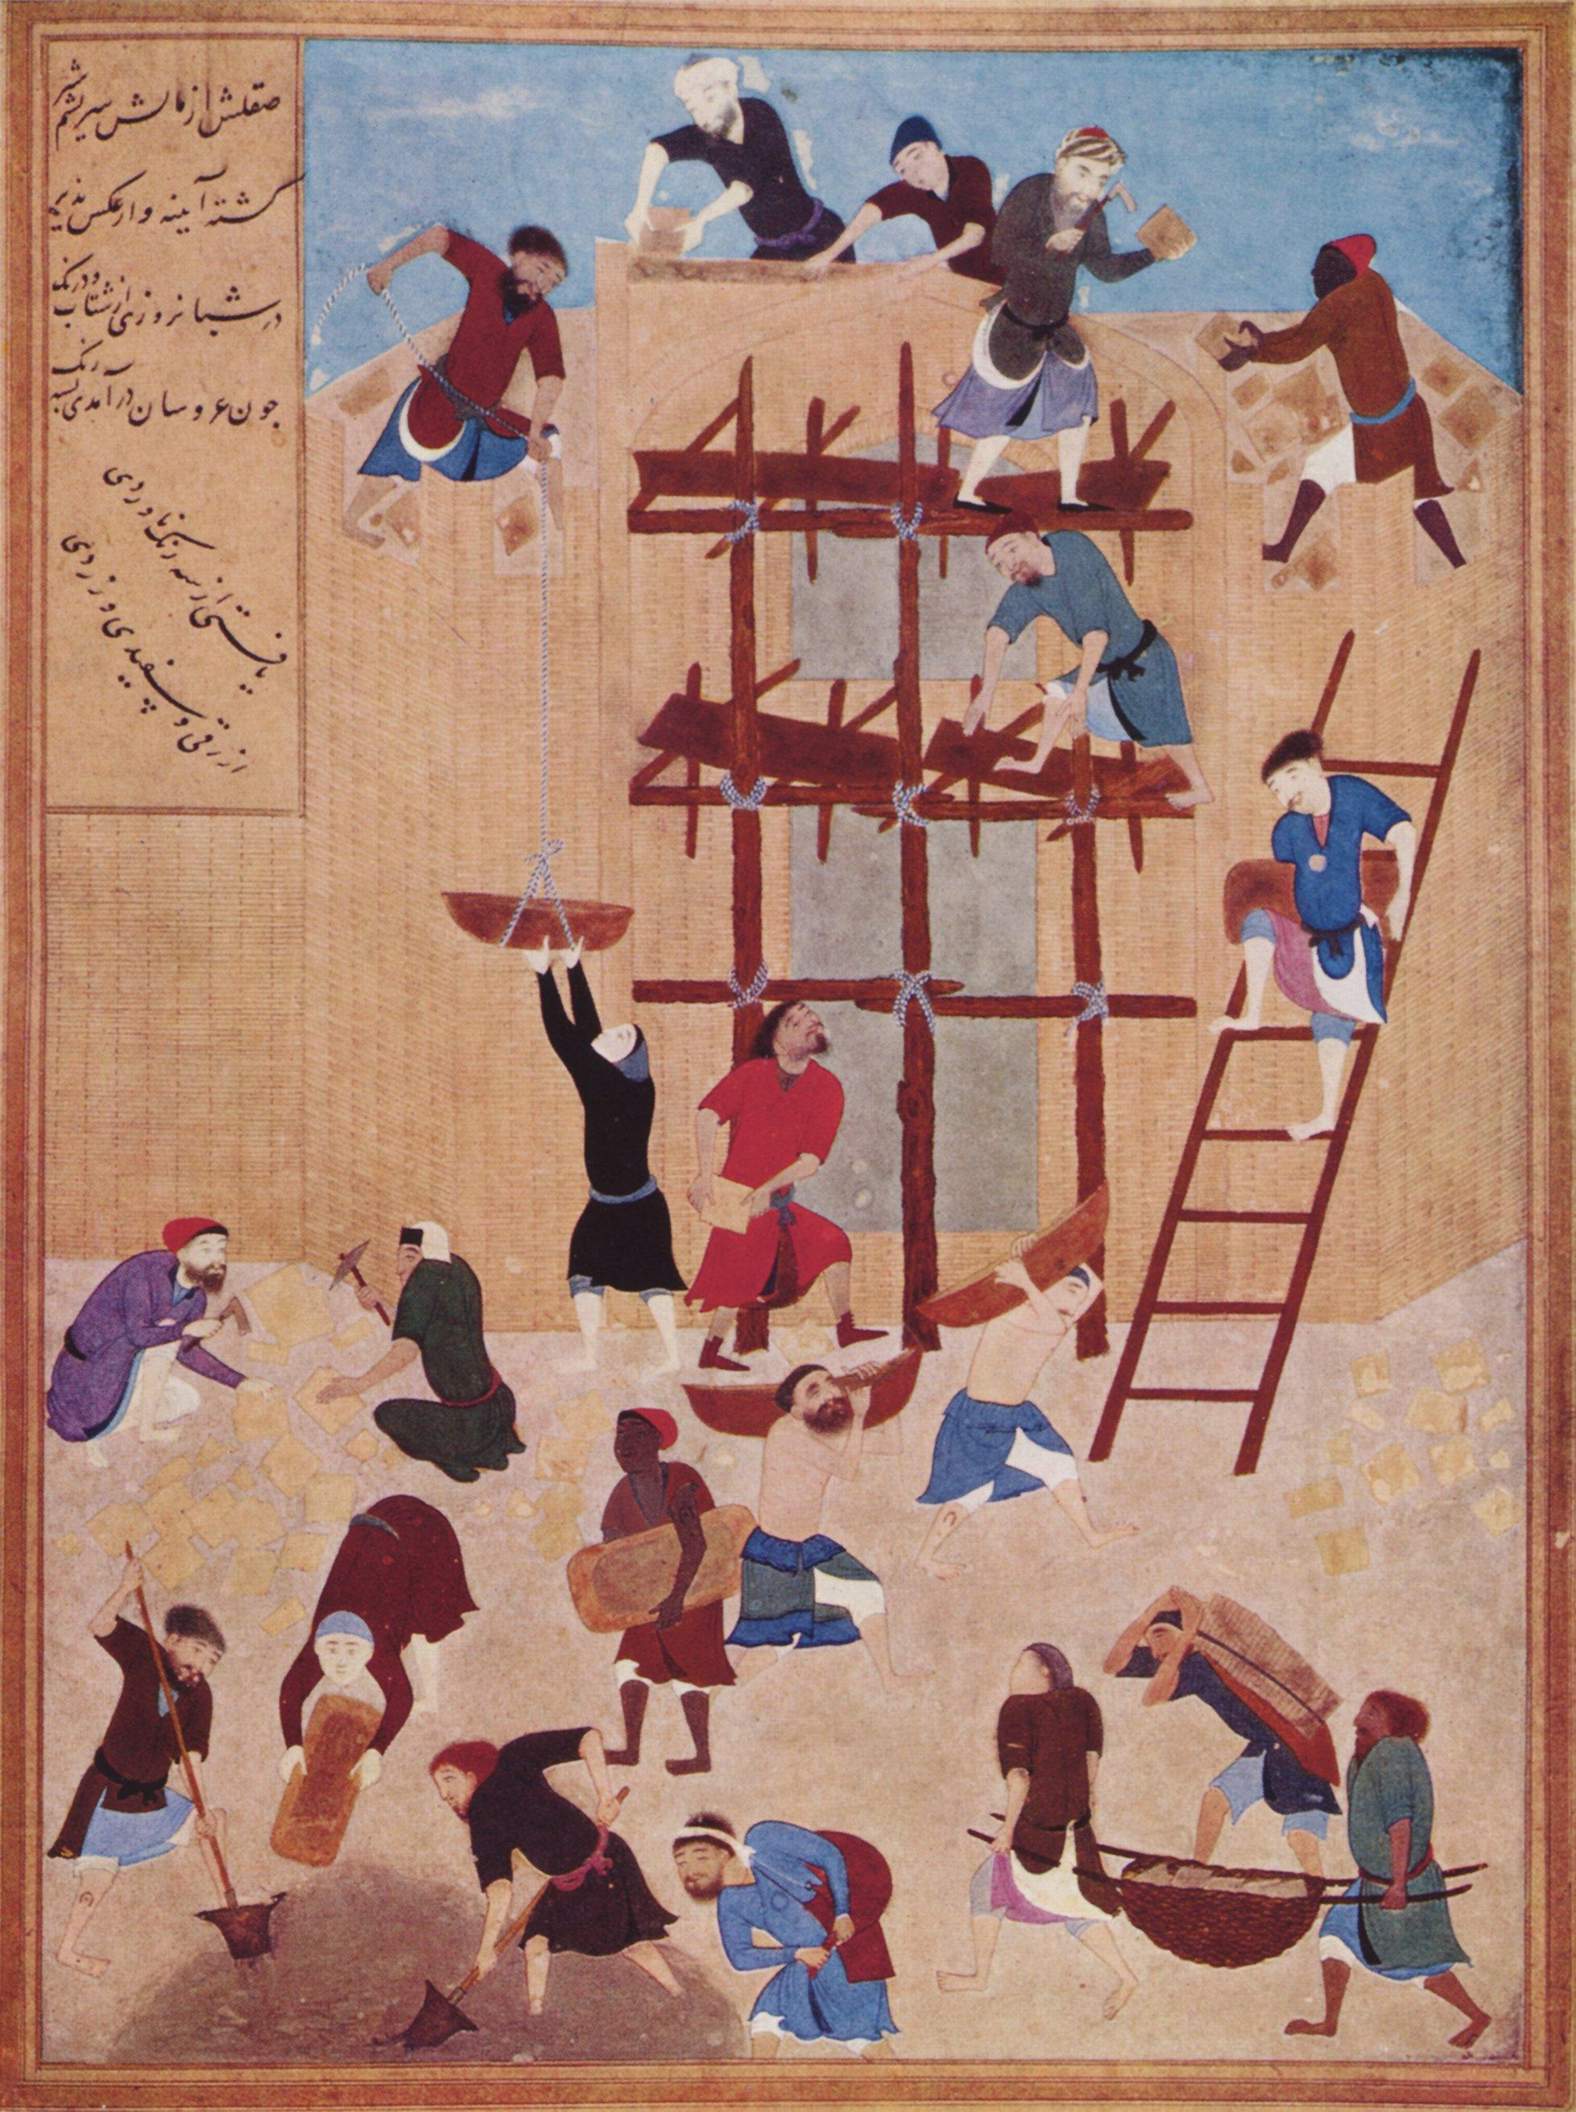 صقلش از مالش سریشم شیر
کشته آینه وار عکس پذیر
در شبانروزی از شتاب و درنک
جون عروسان درآمدی بسه رنک
یافتی از سه رنک ناوردی
ازرقی و سپیدی و زردی